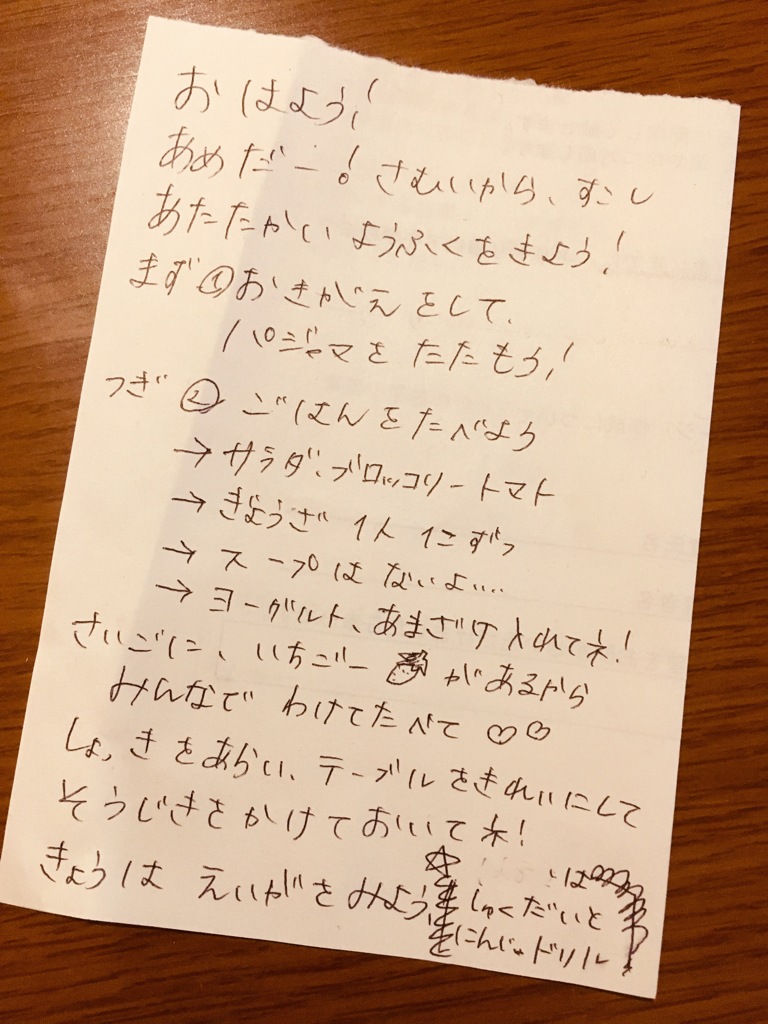 おはよう!
あめだー!さむいから、すこし
あたたかいようふくをきよう!
まず①おきがえをして、
パジャマをたたもう!
つぎ②ごはんをたべよう
→サラダ、ブロッコリートマト
→ぎょうざ1人1こずつ
→スープはないよ....
→ヨーグルト、あまざけ入れてネ!
さいごに、いちごーがあるから
みんなでわけてたべて♡♡
しょっきをあらい、テーブルをきれいにして
そうじきをかけておいてネ!
きょうはえいがをみよう、
☆
しゅくだいと
にんじゃドリル